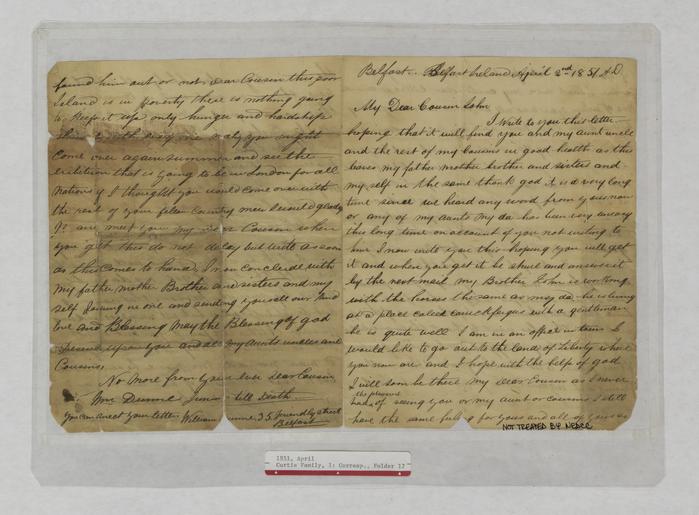 Belfast.. Belfast Ireland April 2nd 1851 A.D.
My Dear Cousin John
I Write to you this letter
hoping that it will find you and my aunt uncle
and the rest of my Cousins in good health as this
leaves my father mother brother and sisters and
my self in the same thank god it is a very long
time since we heard any word from you now
or any of my aunts my da has been very uneasy
this long time on account of you not writing to
him I now write you this hoping you will get
it and when you get it be shure and answer it
by the next mail my Brother John is working
with the horses the same as my da he is living
at a place called Carrickfergus with a gentleman
he is quite well I am in an office in town I
would like to go out to the land of liberty where
you now are and I hope with the help of god
I will soon be there My dear Cousin as I never
had the pleasure of seeing you or my aunt or cousins I still
have the same for you and all of
NOT TREATED BY NEDCC
found him out or not, dear Cousin this poor
Island is in poverty there is nothing going
to keep it up only hunger and hardships
you might
Come over again summer and see the
that is going to be in London for all
Nations if I thought you would come over with
the rest of your fellow Country men I would gladly
meet you my dear Cousin when
you get this do not delay but write as soon
as this comes to hand, I now conclude with
My father mother Brother and sisters and my
self Joining in one and sending you all our kind
love and Blessing May the Blessing of god
upon you and all my aunts uncles and
Cousins,
No More from your ever dear Cousin
Wm till Death
You can direct your letter William 35 Friendly street
Belfast
1851, April
Curtis Family, I: Corresp., Folder 12